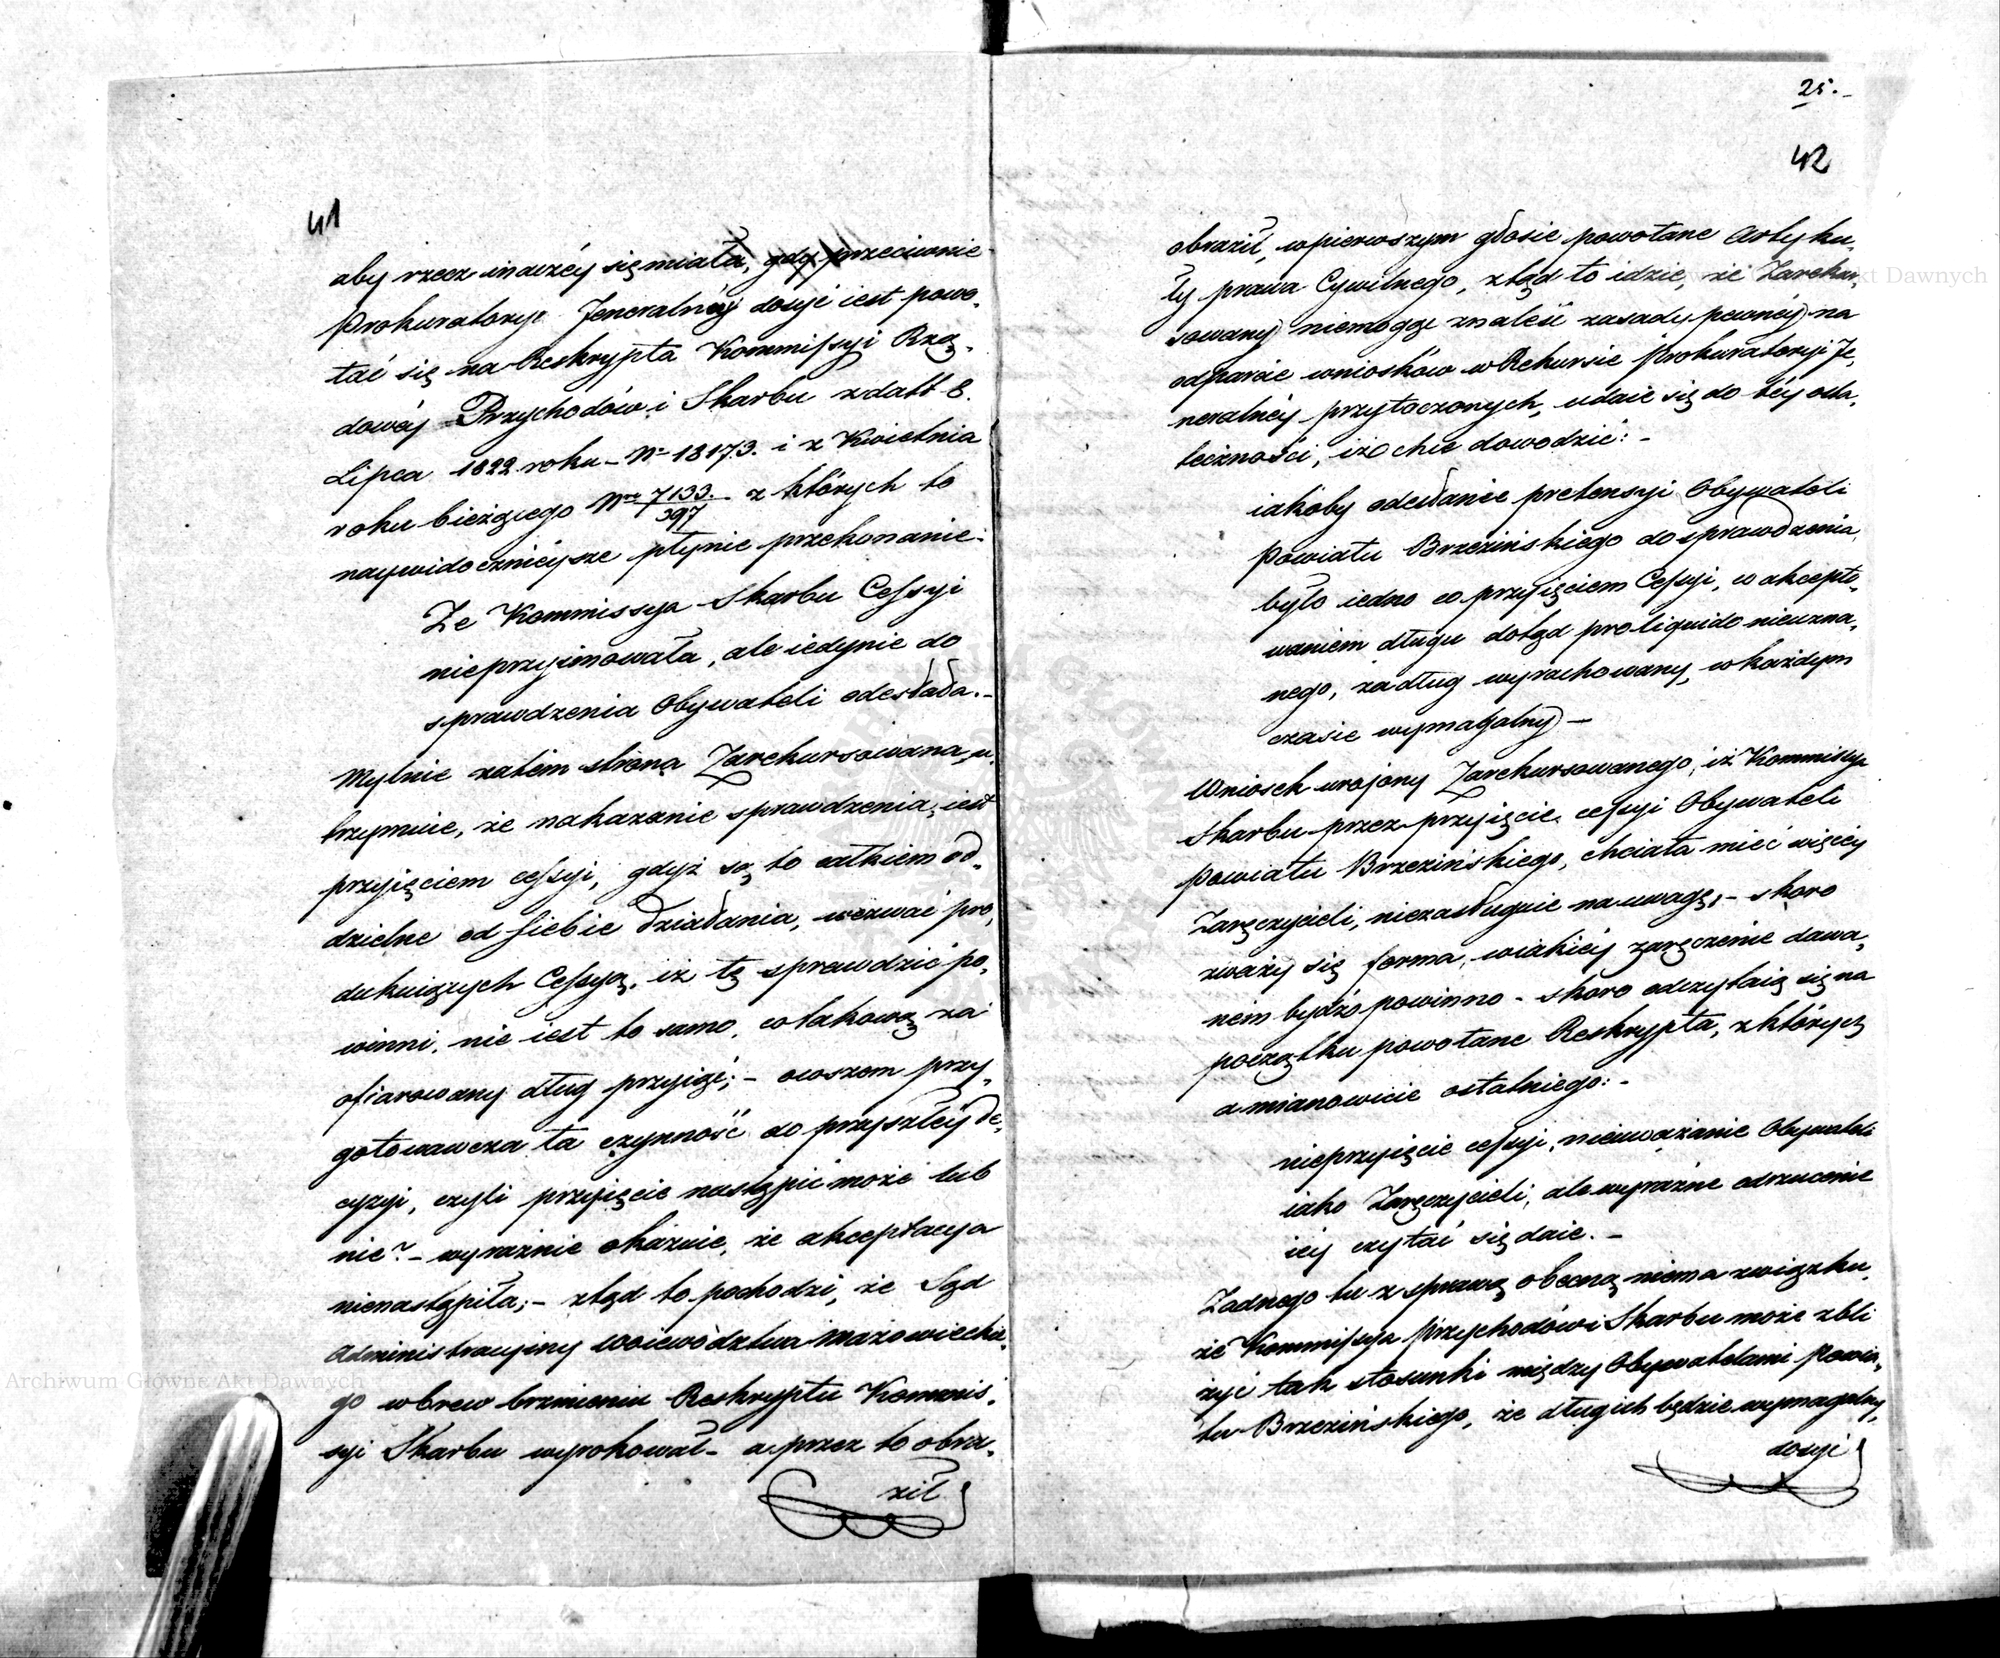 41
aby rzecz inaczéy się miała, gdy przeciwnie
Prokuratoryi Jeneralnéy dosyć iest powo-
łać się na Reskrypta Kommissyi Rzą-
dowéy Przychodów i Skarbu z datt 8.
Lipca 1822 roku - Nr 18173. i z Kwietnia
roku bieżącego Nro 7133./397 z których to
naywidocznieysze płynie przekonanie:
Że Kommissya Skarbu Cessyi
nieprzyimowała, ale iedynie do
sprawdzenia Obywateli odesłała.-
Mylnie zatém strona Zarekursowana u-
trzymuie, że nakazanie sprawdzenia, iest
przyięciem cessyi, gdyż są to całkiem od-
dzielne od siebie działania, wezwać pro-
dukuiących Cessyą, iż tę sprawdzić po-
winni, nie iest to samo, co takową za
ofiarowany dług przyiąć; - owszem przy-
gotowawcza ta czynność do przyszłéy de-
cyzyi, czyli przyięcie nastąpić może lub
nie? - wyraźnie okazuie, że akceptacya
nienastąpiła; - ztąd to pochodzi, że Sąd
Administracyiny Woiewództwa Mazowieckie-
go wbrew brzmieniu Reskryptu Kommis-
syi Skarbu wyrokował - a przez to obra-
ził
25.-
42
obraził, w pierwszym głosie powołane Artyku-
ły prawa Cywilnego, ztąd to idzie, że Zarekur-
sowany niemogąc znaleść zasady pewnéy na
odparcie wniosków w Rekursie Prokuratoryi Je-
neralnéy przytoczonych, udaie się do téy osta-
teczności, iż chce dowodzić: -
iakoby odesłanie pretensyi Obywateli
Powiatu Brzezińskiego do sprawdzenia,
było iedno co przyięciem Cessyi, w akcepto-
waniem długu dotąd pro liquido nieuzna-
nego, za dług wyrachowany, w każdym
czasie wymagalny -
Wniosek urojony Zarekursowanego, iż Kommissya
Skarbu przez przyięcie cessyi Obywateli
Powiatu Brzezińskiego, chciała mieć więcéy
Zaręczycieli, niezasługuie na uwagę, - skoro
zważy się forma, w iakiéy zaręczenie dawa-
nem bydź powinno - skoro odczytaią się na
początku powołane Reskrypta, z których
a mianowicie ostatniego: -
nieprzyięcie cessyi, nieuważanie Obywateli
iako Zaręczycieli, ale wyraźne odrzucenie
iéy czytać się daie. -
Żadnego tu z sprawą obecną niema związku,
że Kommissya Przychodów i Skarbu może zbli
żyć tak stosunki między Obywatelami Powia-
tu Brzezińskiego, że dług ich będzie wymagalny,
dosyć